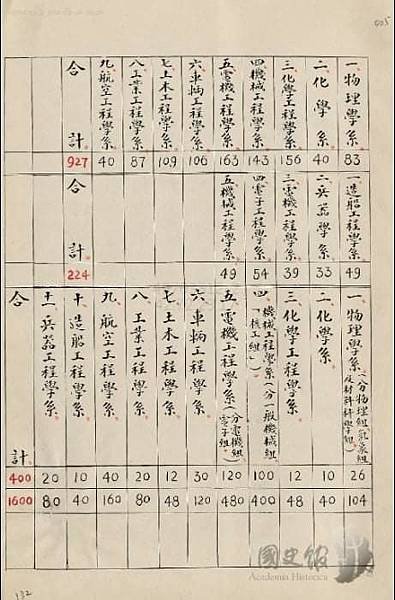 005
一、物理學系 83
二、化學系 40
三、化學工程學系 156
四、機械工程學系 143
五、電機工程學系 163
六、車輛工程學系 106
七、土木工程學系 109
八、工業工程學系 87
九、航空工程學系 40
合計 927
一、造船工程學系 49
二、兵器學系 33
三、電機工程學系 39
四、電子工程學系 54
五、機械工程學系 49
合計 224
一、物理學系(分物理組氣象組及材料科學組) 26 104
二、化學系 10 40
三、化學工程學系 12 48
四、機械工程學系(分一般機械組「核」組) 100 400
五、電機工程學系(分電機組電子組) 120 480
六、車輛工程學系 30 120
七、土木工程學系 12 48
八、工業工程學系 20 80
九、航空工程學系 40 160
十、造船工程學系 10 40
十一、兵器工程學系 20 80
合計 400 1600
132
國史館
Academia Historica